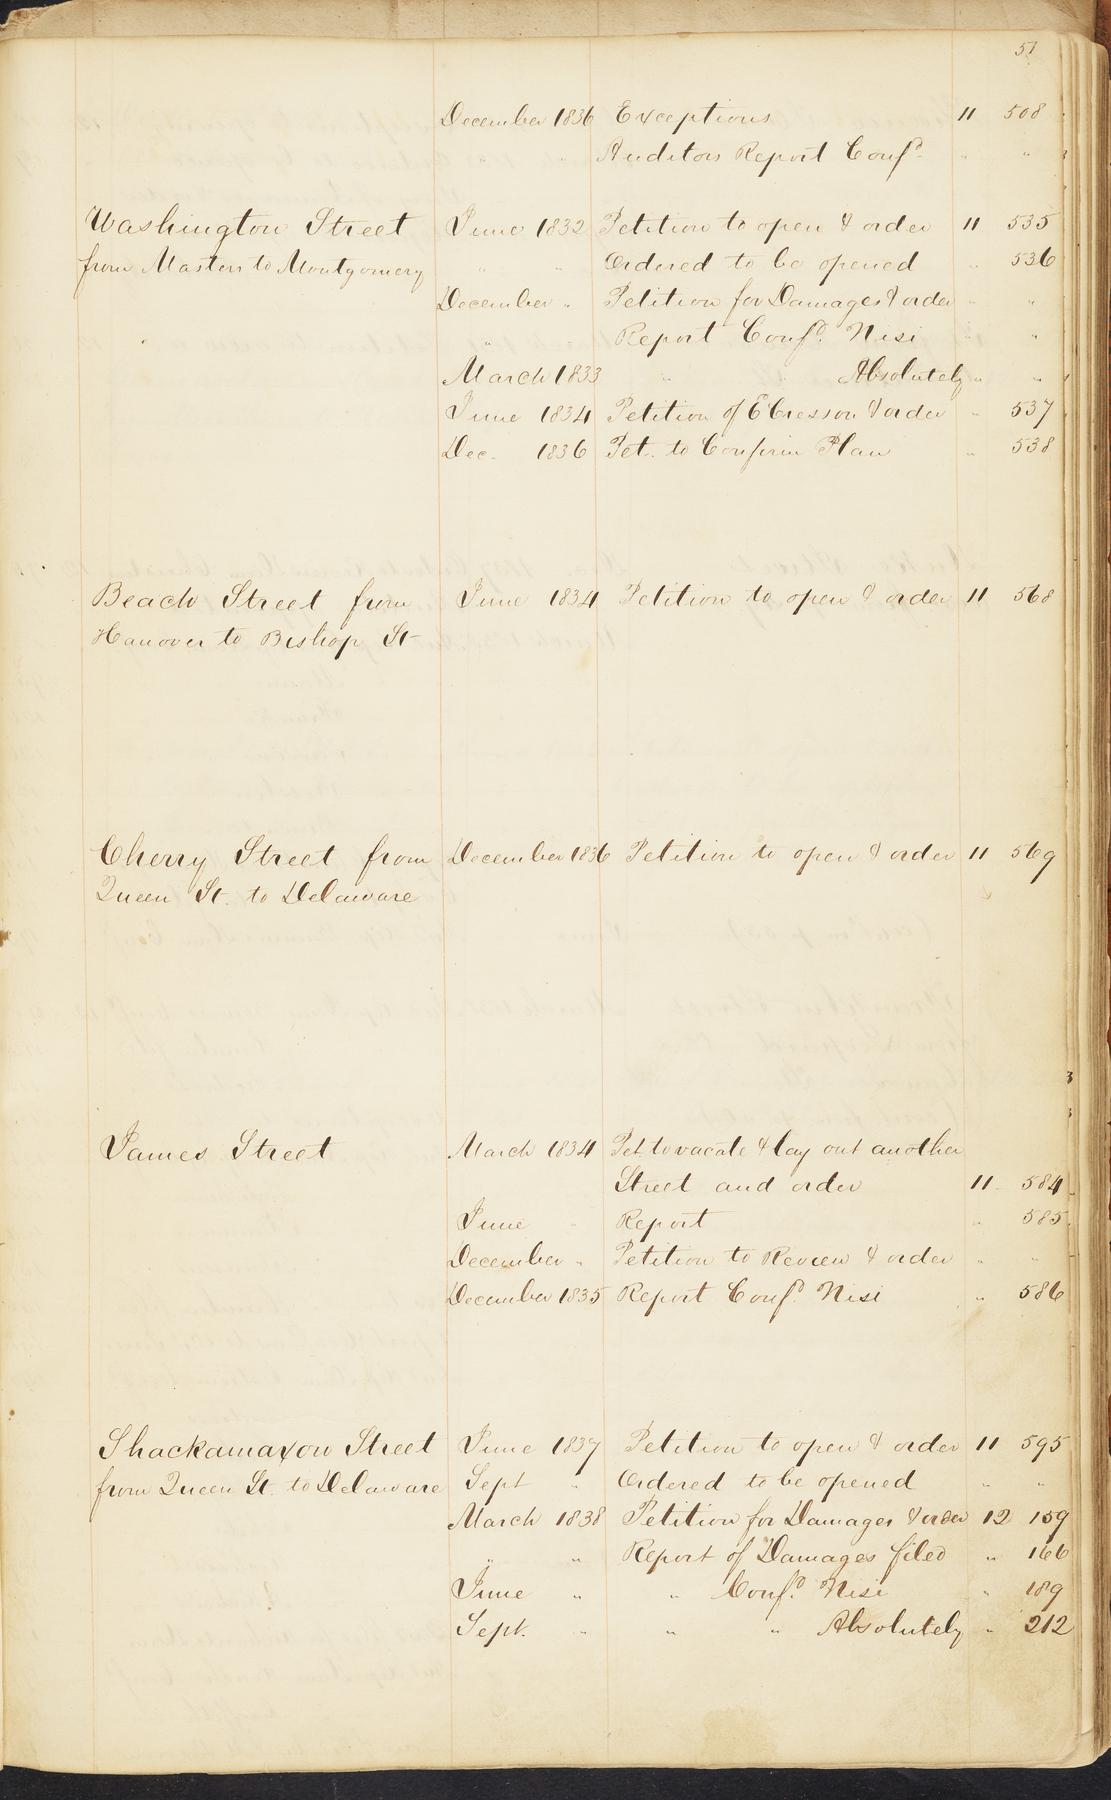 51
December 1836 Exceptions 11 508
" " Auditors Report Confd. " "
Washington Street June 1832 Petition to open & order 11 535
from Masters to Montgomery " " Ordered to be opened " 536
December " Petition for Damages & order " "
" Report Confd. Nisi " "
March 1833 " " Absolutely " "
June 1834 Petition of E Cresson & order " 537
Dec. 1836 Pet. to Confirm Plan " 538
Beach Street from June 1834 Petition to open & order 11 568
Hanover to Bishop St
Cherry Street from December 1836 Petition to open & order 11 569
Queen St. to Delaware
James Street March 1834 Pet. to vacate & lay out another
Street and order 11 584
June " Report " 585
December " Petition to Review & order " "
December 1835 Report Confd. Nisi " 586
Shackamaxon Street June 1837 Petition to open & order 11 595
from Queen St. to Delaware Sept " Ordered to be opened " "
March 1838 Petition for Damages & order 12 159
" " Report of Damages filed " 166
June " " Confd. Nisi " 189
Sept. " " " Absolutely " 212